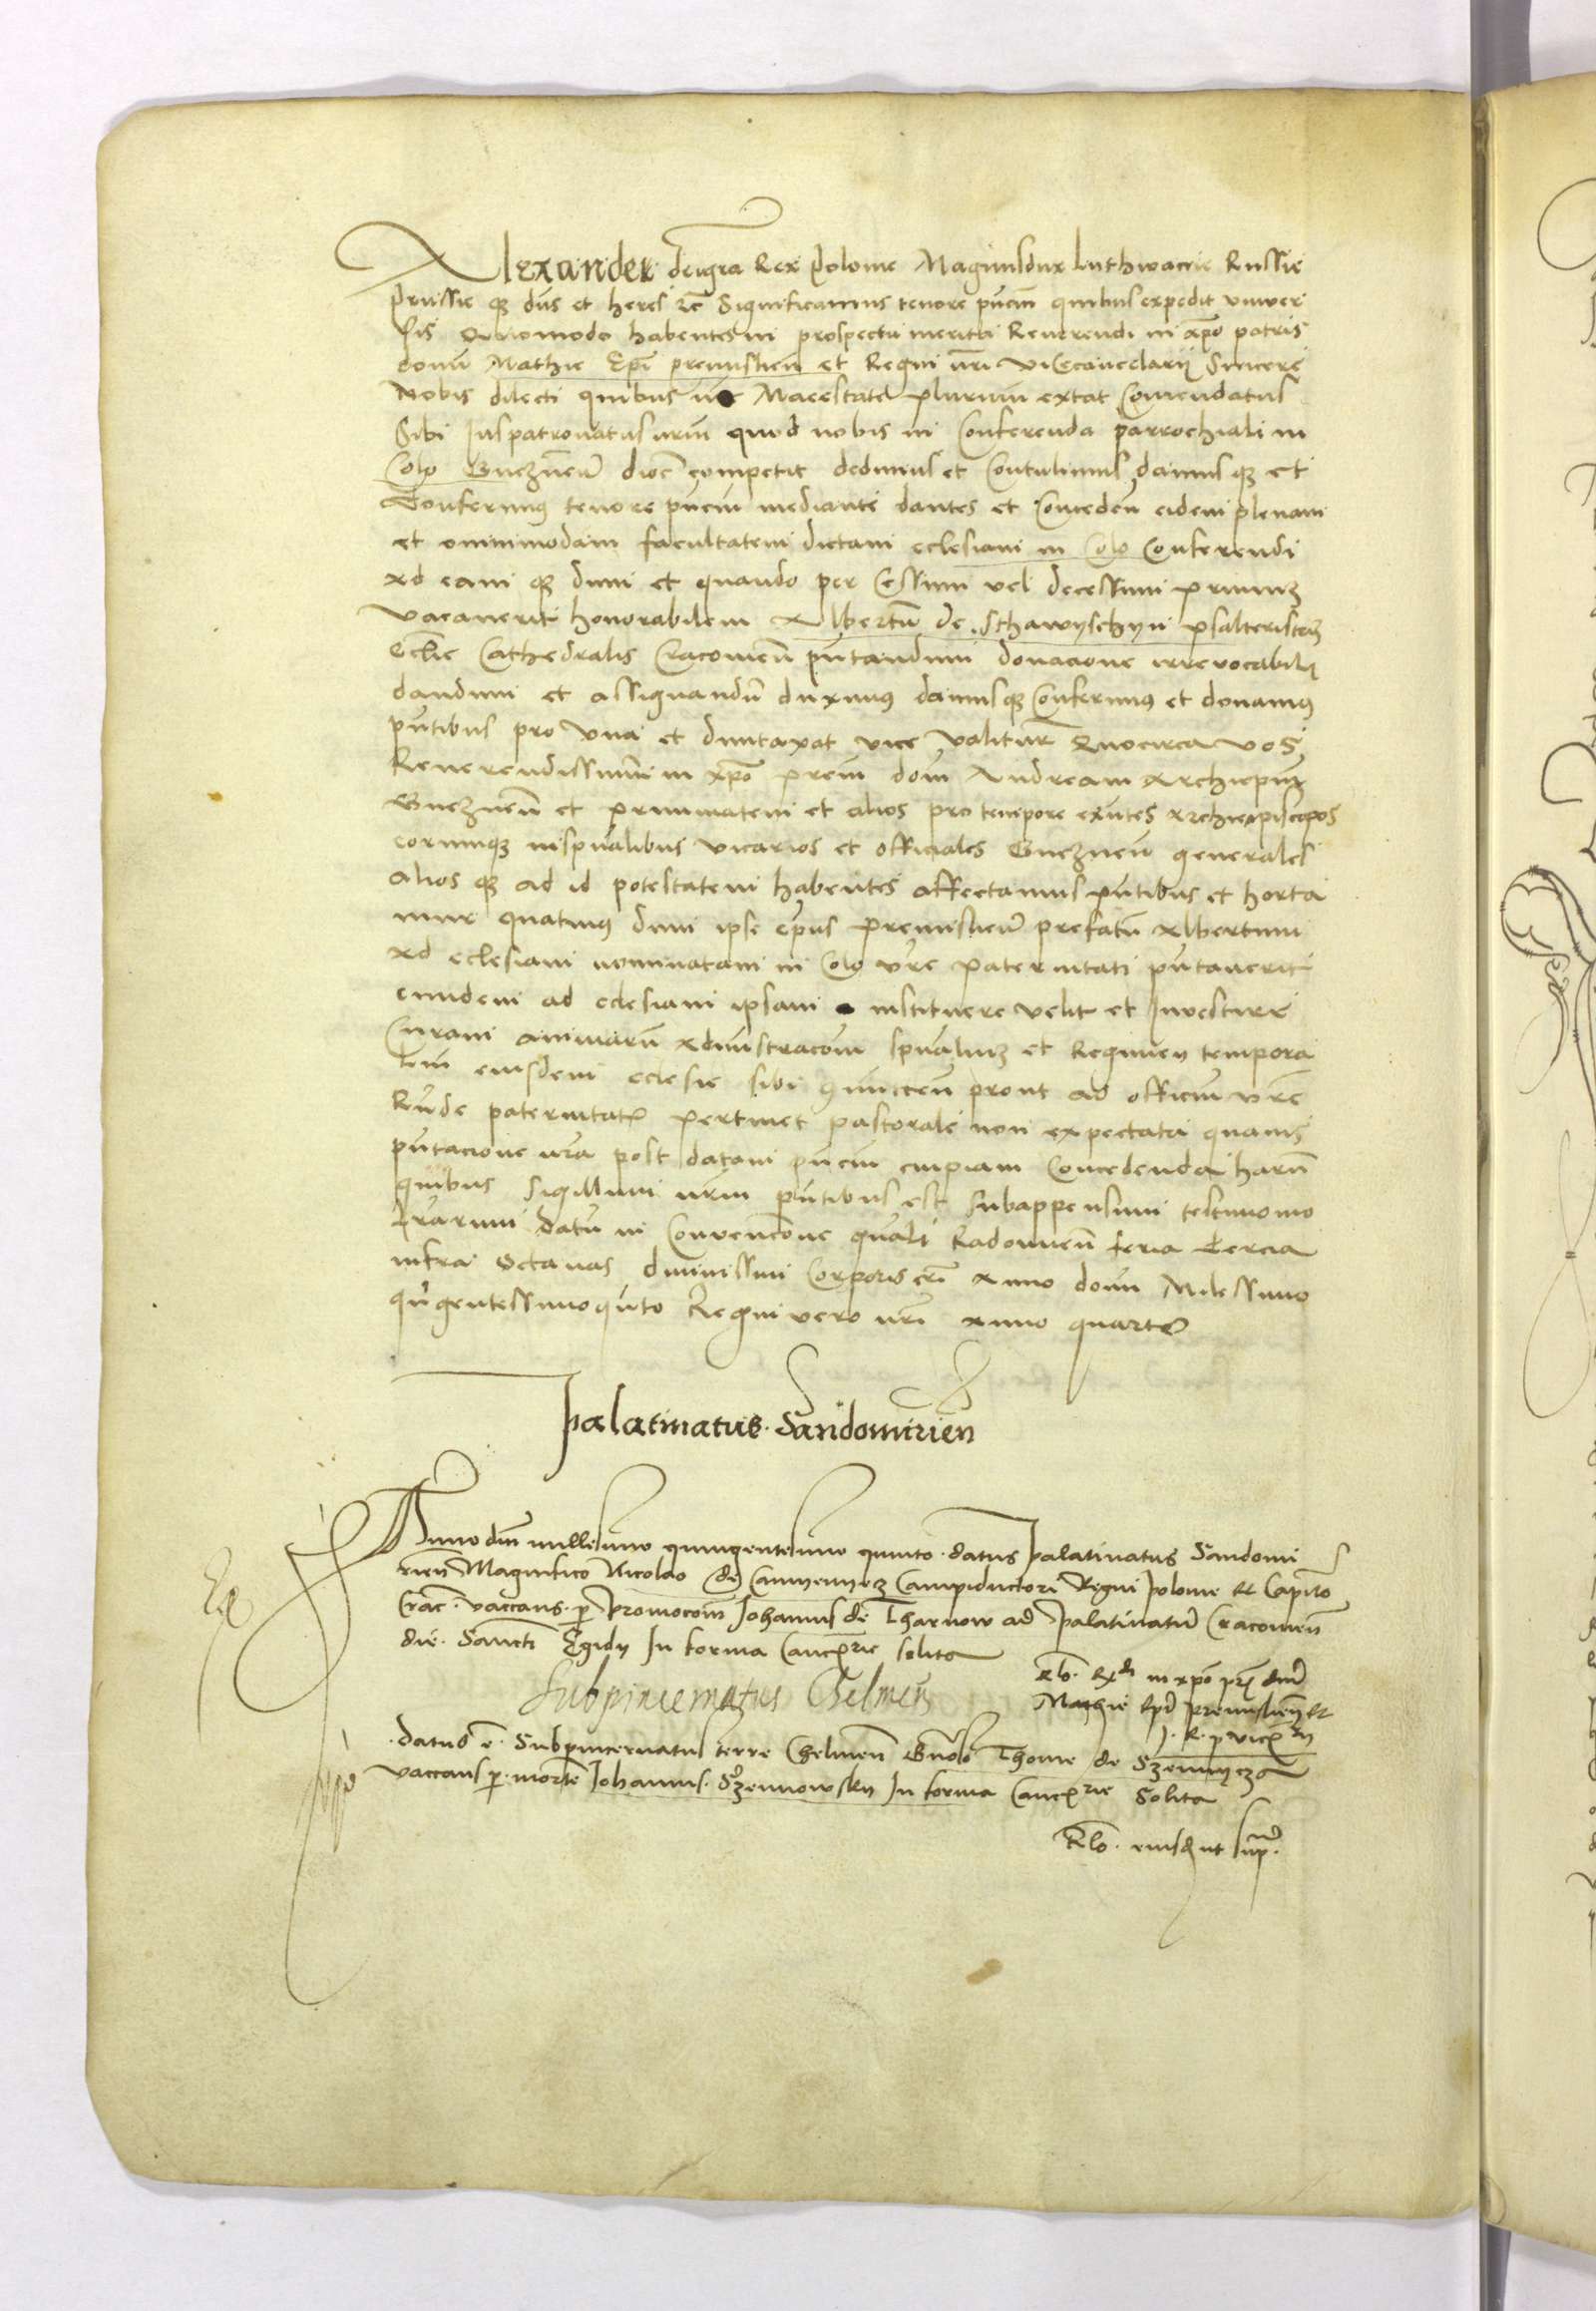 Alexander deigra Rex Polonie Magnusdux Lithwanie Russie
prussie qz dns et heres rc Significamus tenore pncm quibus expedit vniver
sis Quomodo habentes in prospectu merita Reverendi in xpo patris
domi Mathie Epi premislien et Regni nri vicecancelarii sincere
Nobis dilecti quibus nre Maiestati plurium extat Comendatus
Sibi Iuspatronatus nrm quod nobis in Conferenda parrochiali in
Colo Gneznen dioc competit dedimus et Contulimus damus qz et
Conferimus tenore pncm mediante dantes et Conceden eidem plenam
et omnimodam facultatem dictam eclesiam in Colo Conferendi
Ad eam qz dum et quando per Cessum vel decessum primum
vacaverit honorabilem Albertum de Schawyschyn psalteristam
Eclie Cathedralis Cracovien pntandum donacione irrevocabili
dandum et assignandu duximus damusqz Conferimus et donamus
pntibus pro vna et dumtaxat vice valitur Quocirca vos
Reverendissimum in xpo prem dom Andream Archiepum
Gneznen et primatem et alios pro tempore exntes Archiepiscopos
eorumqz in spualibus vicarios et officiales Gneznen generales
alios qz ad id potestatem habentes affectamus pntibus et horta
mur quatinus dum ipse epus premislien prefatu Albertum
Ad eclesiam nominatam in Colo vre paternitati pntaverit
eundem ad eclesiam ipsam instituere velit et Investire
Curam animaru Administracom spualium et Regimen tempora
lium eiusdem eclesie sibi comitten prout ad officium vre
Rnde paternitatis pertinet pastorale non expectata quavis
pntacione nra post datam pncm cuipiam Concedenda haru
quibus sigillum nrm pntibus est subappensum testimonio
lrarum datu in Convencione gnali Radomien feria tercia
infra Octavas divinissimi Corporis cri Anno domi Milessimo
qngentessimoqnto Regni vero nri Anno quarto
Palatinatus Sandomirien
Anno dni millesimo quingentesimo quinto datus palatinatus Sandomi
rien Magnifico Nicolao de Camyenyecz Campiductori Regni polonie et Capito
Crac. vaccans p promocom Johannis de Tharnow ad Palatinatu Cracovien
die Sancti Egidy In forma Cancrie solita
Rlo. Rdi in xpo pris dni
Mathie Epi premislien et
J. R. p vicecry
Subpincernatus Chelmen
datus e. Subpincernatus terre Chelmen Gnoso Thome de
vaccans p. mortem Johannis In forma Cancrie Solita
Rlo. eiusd ut sup.